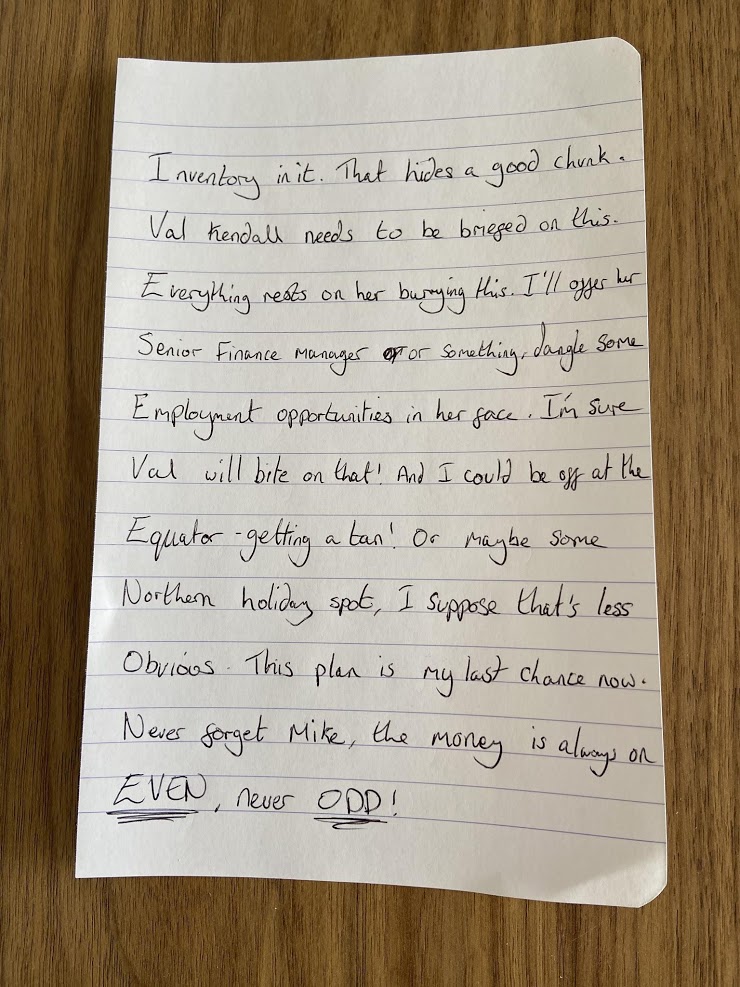 Inventory in it. That hides a good chunk.
Val Kendall needs to be briefed on this.
Everything rests on her burying this. I'll offer her
Senior Finance Manager or or something, dangle some
Employment opportunities in her face. I'm sure
Val will bite on that! And I could be off at the
Equator - getting a tan! Or maybe some
Northern holiday spot, I suppose that's less
Obvious. This plan is my last chance now.
Never forget Mike, the money is always on
EVEN, never ODD!